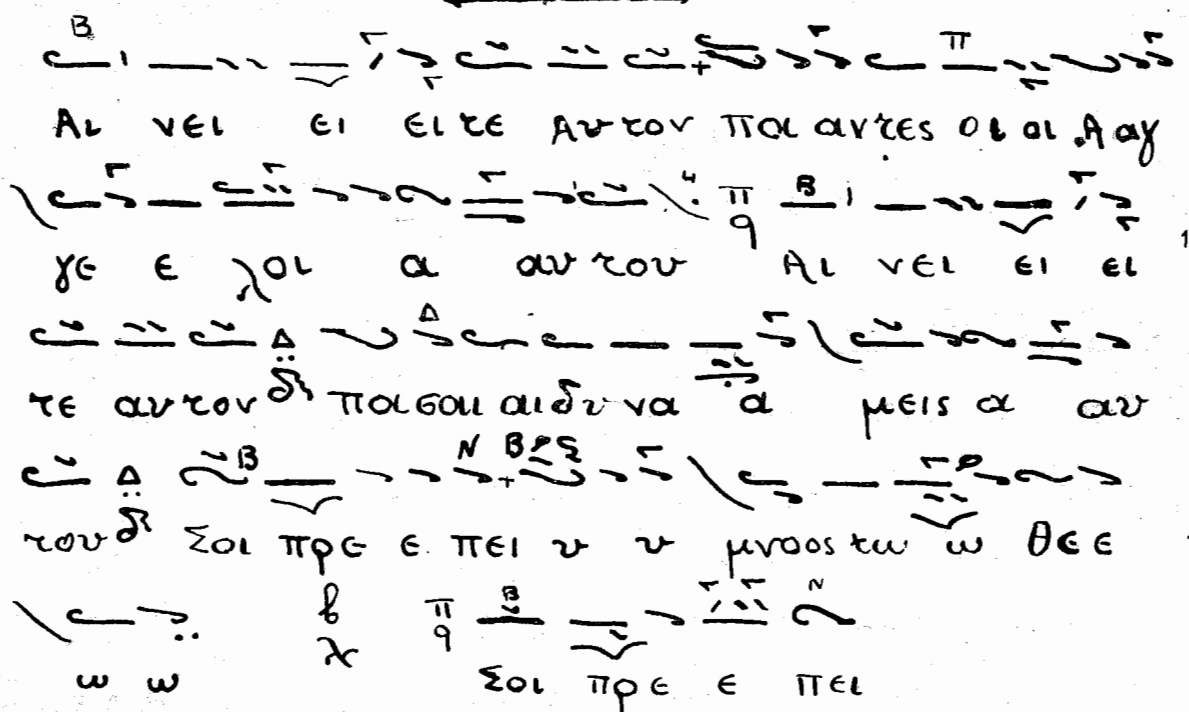 Αι νει ει ει τε Αυτον παι αντες οι οι Ααγ
γε ε λοι α αυ του Αι νει ει ει
τε αυτον παισαι αιδυ να α μεις α αυ
του Σοι πρε ε πει υ υ μνοος τω ω θε ε
ω ω Σοι πρε ε πει